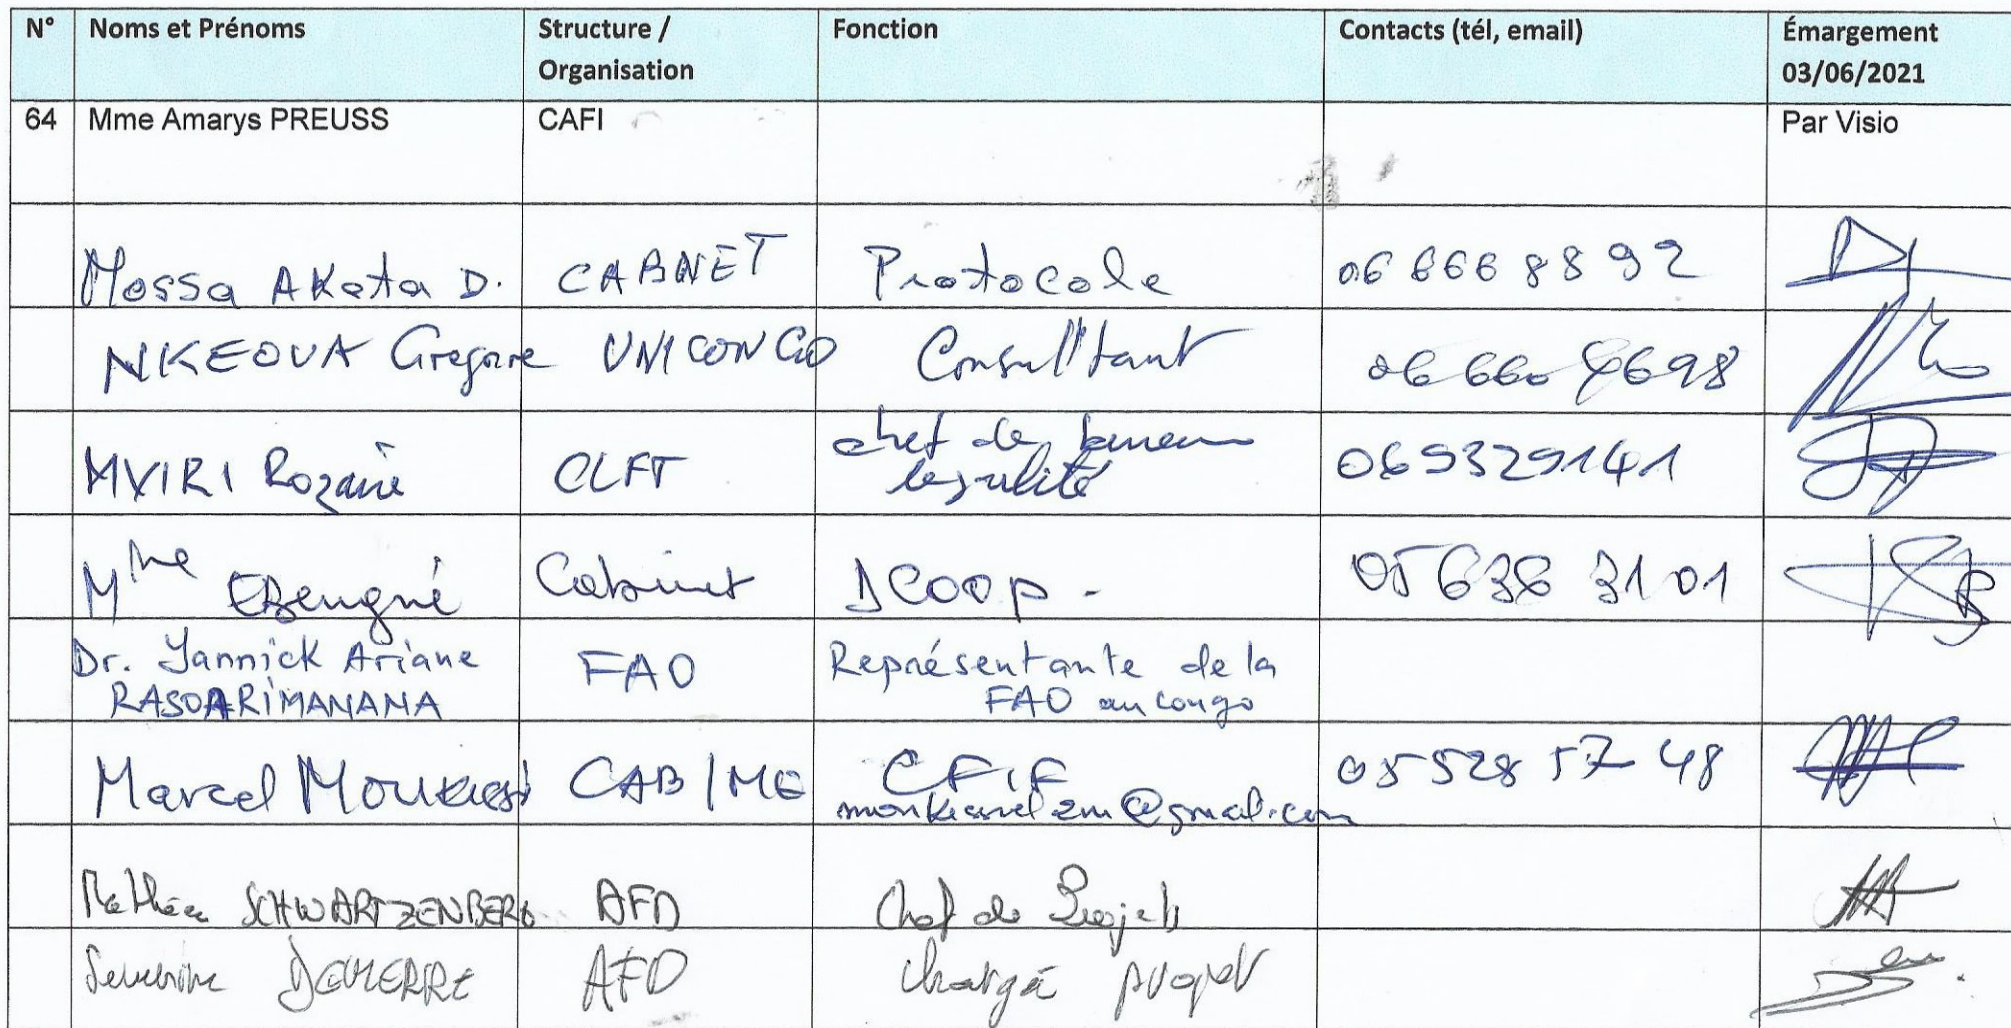 N° Noms et Prénoms Structure / Organisation Fonction Contacts (tél, email) Émargement 03/06/2021
64 Mme Amarys PREUSS CAFI Par Visio
Mossa AKata D. CABNET Protocole 06 666 88 92
NKEOUA Gregoire UNICONGO Consultant 06 660
MVIRI CLFT chef de bureau légalité 069329141
Mme Cabinet DCOOP - 05 638 31 01
Dr. Yannick Ariane RASOARIMANANA FAO Représentante de la FAO au Congo
Marcel CAB/ME CFIF 05 528 57 48
@gmail.com
SCHWARTZENBERG AFD Chef de Projets
AFD Chargé projet